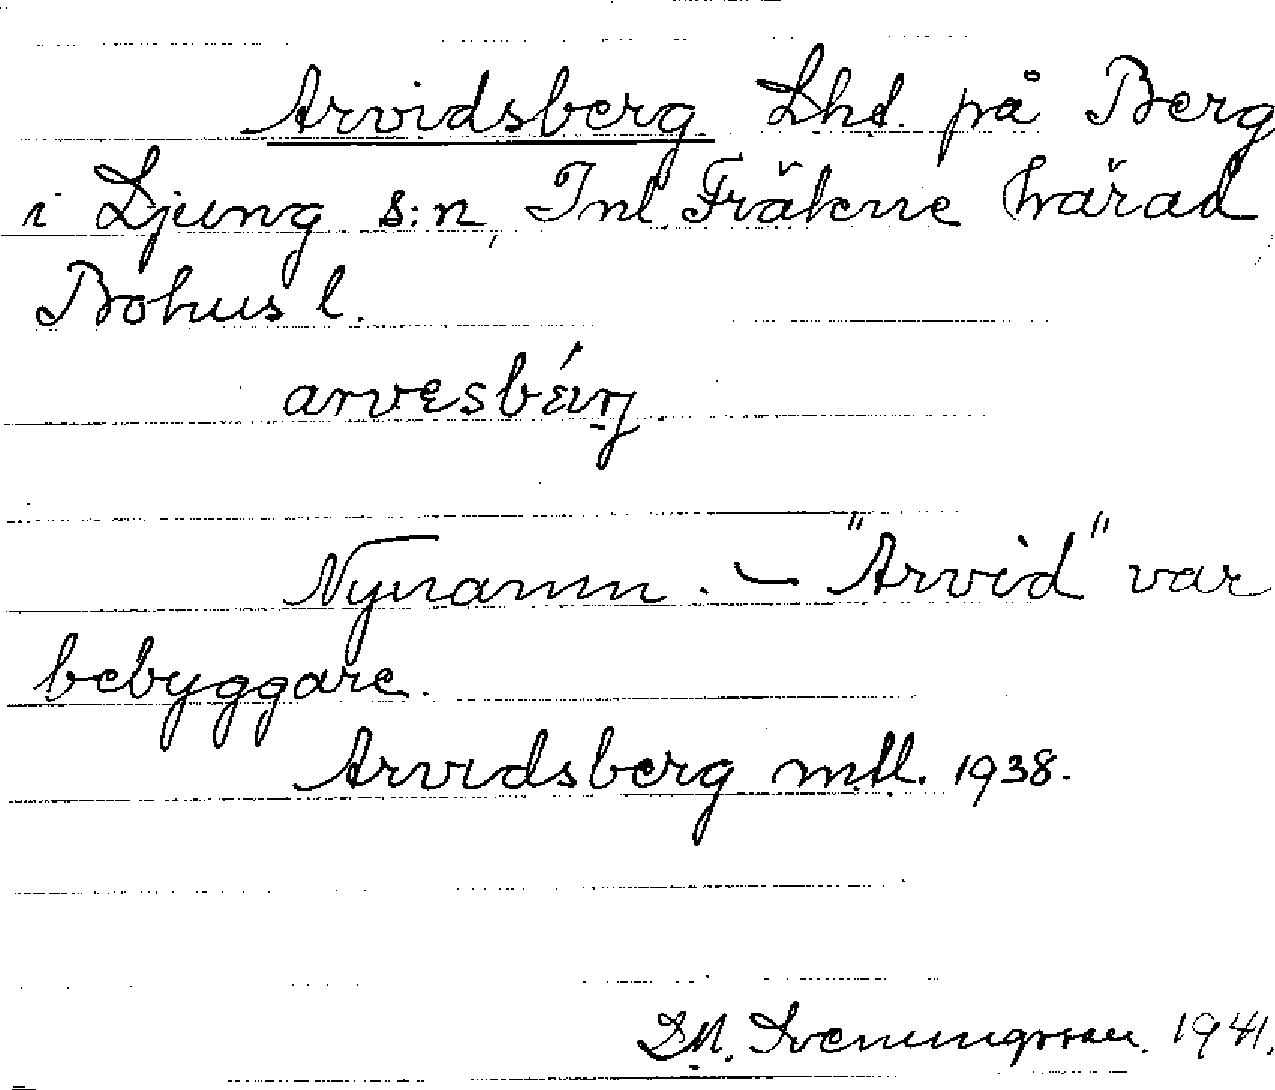 Arvidsberg Lhd. på Berg
i Ljung s:n, Inl. Fräkne härad,
Bohus l.
arvesbärj
Nynamn. — "Arvid" var
bebyggare.
Arvidsberg mtl. 1938.
Sveningsson. 1941.